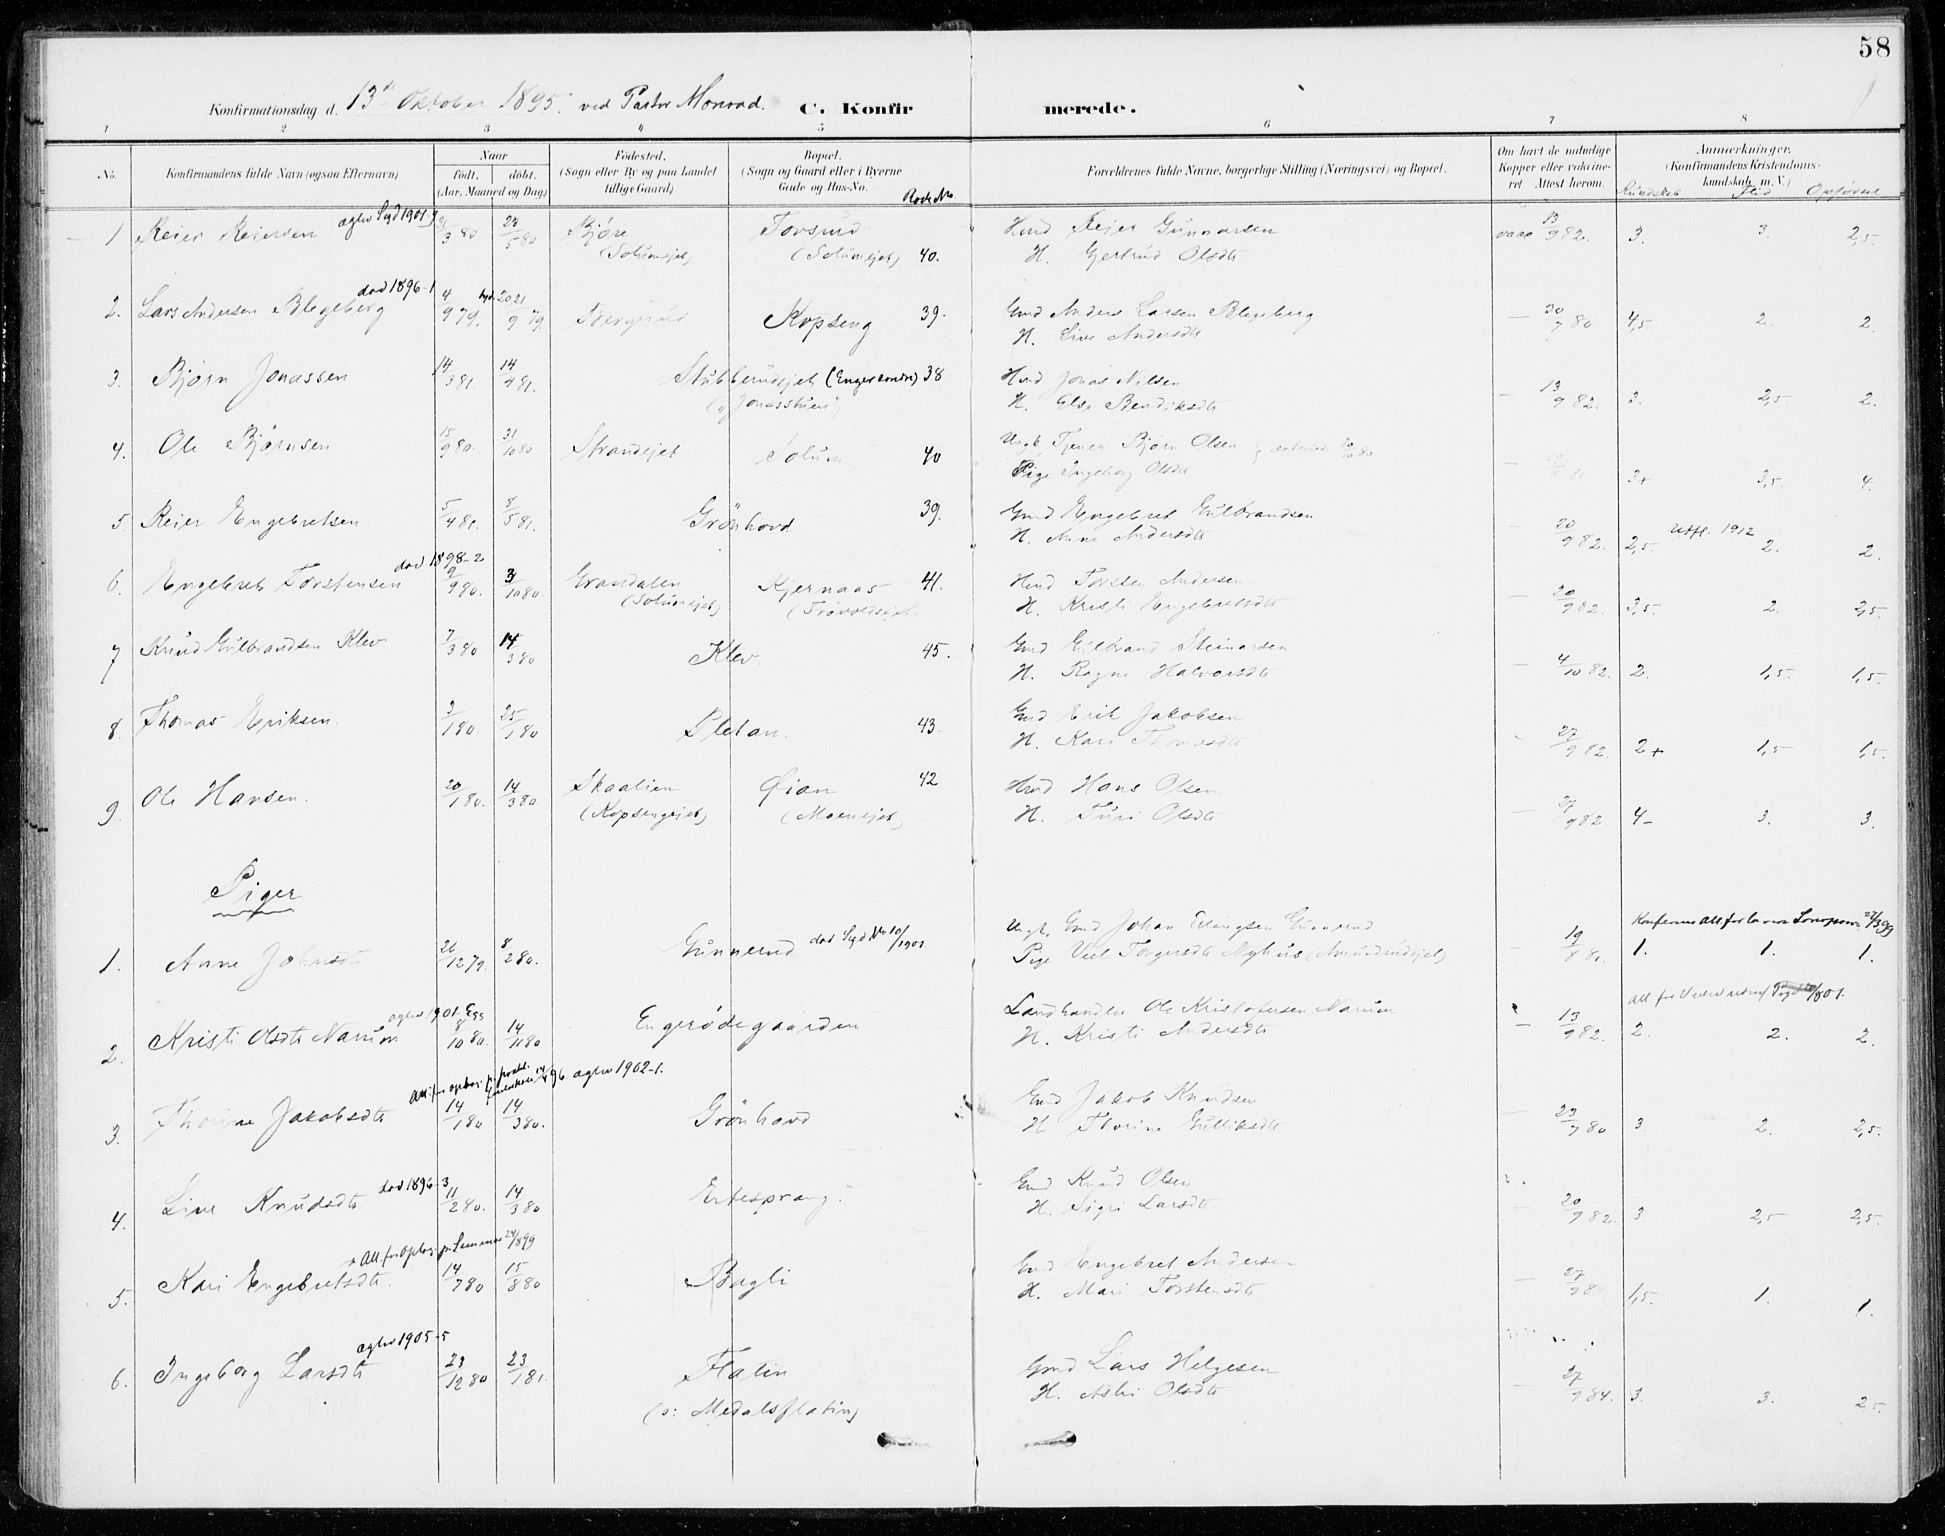 58
Konfirmationsdag d. 13de Oktober 1895. ved Pastor Monrad. C. Konfirmerede.
1 2 3 4 5 6 7 8
No. Konfirmandens fulde Navn (ogsaa Efternavn) Naar født. døbt. (Aar, Maaned og Dag) Fødested. (Sogn eller By og paa Landet tillige Gaard) Bopæl. (Sogn og Gaard eller i Byerne Gade og Hus-No. Rode No. Forældrenes fulde Navne, borgerlige Stilling (Næringsvei) og Bopæl. Om havt de naturlige Kopper eller vaccineret Attest herom. Anmærkninger. (Konfirmandens Kristendomskundskab m. V.) Kundskab Flid Opførsel
aglev Sgd 1901-
1 Reier Reiersen 3 80 80 Bjøre Torsrud Hmd Reier Gunnarsen vacc 13/9 82. 3. 3. 2,5.
(Solumsjet) (Solumsjet) 40. H. Gertrud Olsdt
død 1896-1
2. Lars Andersen Blegeberg 4/9 79. 21/9 79. Bergerud Kopseng 39. Gmd Anders Larsen Blegeberg 30/7 80 4,5 2. 2.
H. Live Andersdt
3. Bjørn Jonassen 14/3 81. 14/4 81. Stubberudejet (Enger søndre) 38 Hmd Jonas Nilsen 13/9 82. 3. 2,5. 2.
("Jonasstuen") H. Else Bendiksdt
4. Ole Bjørnsen 15/9 80. 31/10 80 Strandejet Solum 40 Ungk. Tjener Bjørn Olsen 20/10 80
Pige Ingeborg Olsdt 3+ 3,5. 4.
5. Reier Engebretsen 5/4 81. 8/5 81. Grønhovd 39. Gmd Engebret Gulbrandsen
H. Anne Andersdt 20/9 82. 2,5. utfl. 1912 2. 2.
død 1898-2
6. Engebret Torstensen 9/9 80. 3/10 80. Grandalen Kjernaas 41. Hmd Torsten Andersen
(Solumsjet) H. Kristi Engebretsdt 20/9 82. 3,5. 2. 2,5.
7 Knud Gulbrandsen Klev 7/3 80 14/3 80 Klev. 45. Gmd Gulbrand Steinarsen
H. Ragne Halvorsdt 4/10 82. 2. 1,5. 1,5.
8. Thomas Eriksen. 3/1 80. 25/1 80 Pletan. 43. Gmd Erik Jakobsen
H. Kari Thomasdt 27/9 82. 2+ 1,5 1,5.
9. Ole Hansen. 20/1 80. 14/3 80. Skaalien Øian 42 Hmd Hans Olsen
(Kopsengejet) (Moenejet) H. Turi Olsdt 27/9 82. 4- 3. 3.
Piger
1. Anne Johnsdt 21/12 79. 8/2 80. Gunnerud død Sgd No 10/1901 Ungk. Gmd Johan Gunnerud
Pige Torgersdt Nyhus 19/8 81. 1. 1. 1.
aglev 1901
2. Kristi Olsdt Narum 8/10 80. 14/11 80 Engerødegaarden Landhandler Ole Kristofersen Narum
H. Kristi Andersdt 13/9 82. 2. 2. 2.
aglev 1902-1.
3. Thorine Jakobsdt 14/1 80 14/3 80. Grønhovd Gmd Jakob Knudsen
H. Thorine Gulliksdt 23/7 80 3. 2. 2,5.
død 1896-3
4. Live Knudsdt 11/2 80. 14/3 80 Ertesprang Gmd Knud Olsen
H. Sigri Larsdt 20/9 82. 3. 2,5 2,5.
Att. for optag. p. Seminar 24/8 99
5. Kari Engebretsdt. 14/7 80 15/8 80 Bagli Gmd Engebret Andersen
H. Mari Torstensdt 27/9 1,5. 1. 1.
aglev 1905-5
6. Ingeborg Larsdt 23/12 80 23/1 81. Flatin Gmd Lars Helgesen
(ɔ: Medalsflatin) H. Aslri Olsdt 27/9 84. 3. 3. 2,5.